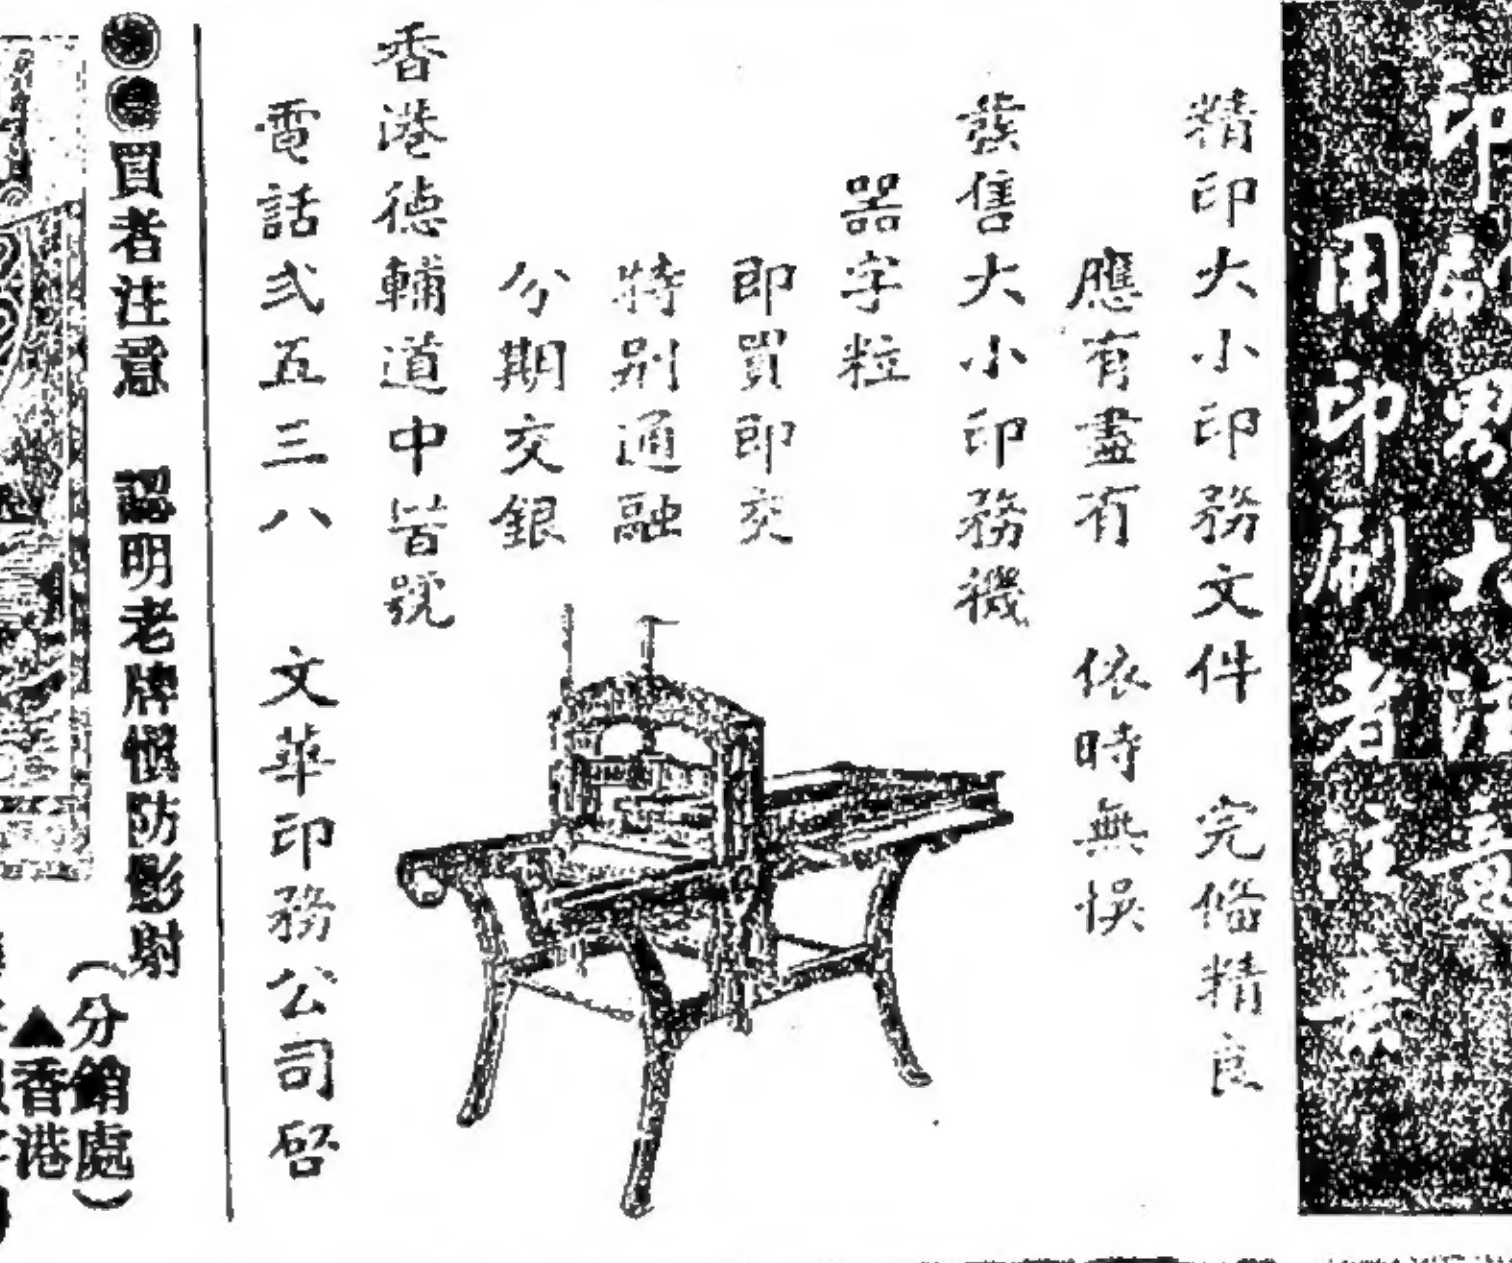 印刷界大注意
用印刷者注意
精印大小印務文件 完俻精良
應有盡有 依時無悞
發售大小印務機
器字粒
即買即交
特别通融
分期交銀
香港德輔道中皆號
電話弍五三八 文華印務公司啓
買者注意 認明老牌慎防影射
(分銷處)
▲香港